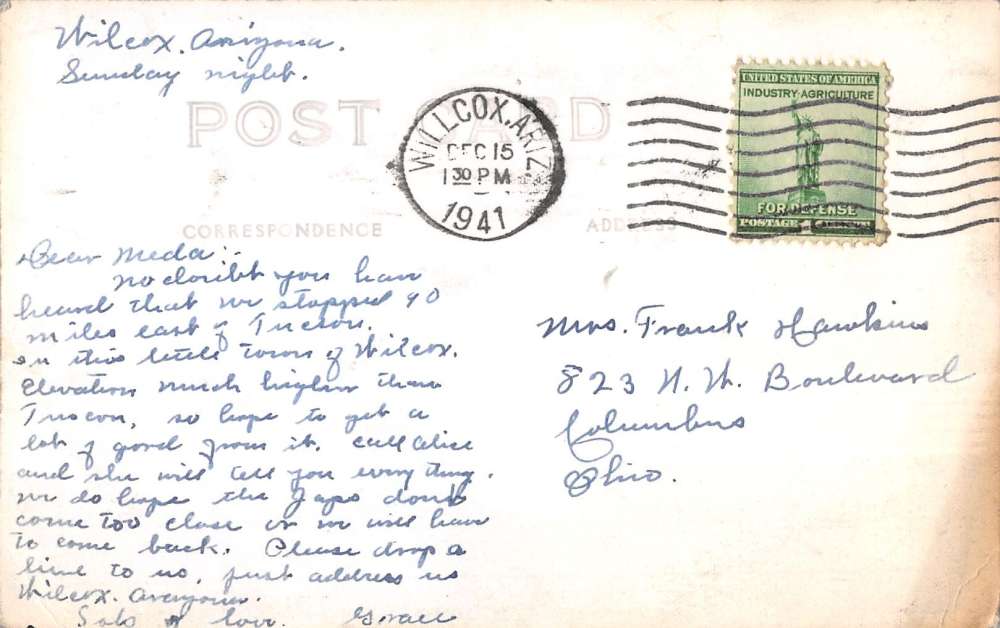 Wilcox. Arizona.
Sunday night.
POST CARD
WILLCOX, ARIZ.
DEC 15
1 30 PM
1941
UNITED STATES OF AMERICA
INDUSTRY·AGRICULTURE
FOR DEFENSE
POSTAGE 1 CENT
CORRESPONDENCE
ADDRESS
Dear Meda:
no doubt you have
heard that we stopped 90
miles east of Tucson.
in this little town of Wilcox.
Elevation much higher than
Tuscon, so hope to get a
lot of good from it. Call Alice
and she will tell you every thing.
we do hope the Japs dont
come too close or we will have
to come back. Please drop a
line to us, just address us
Wilcox. Arizona.
Lots of love. Grace
Mrs. Frank Hawkins
823 N. W. Boulevard
Columbus
Ohio.